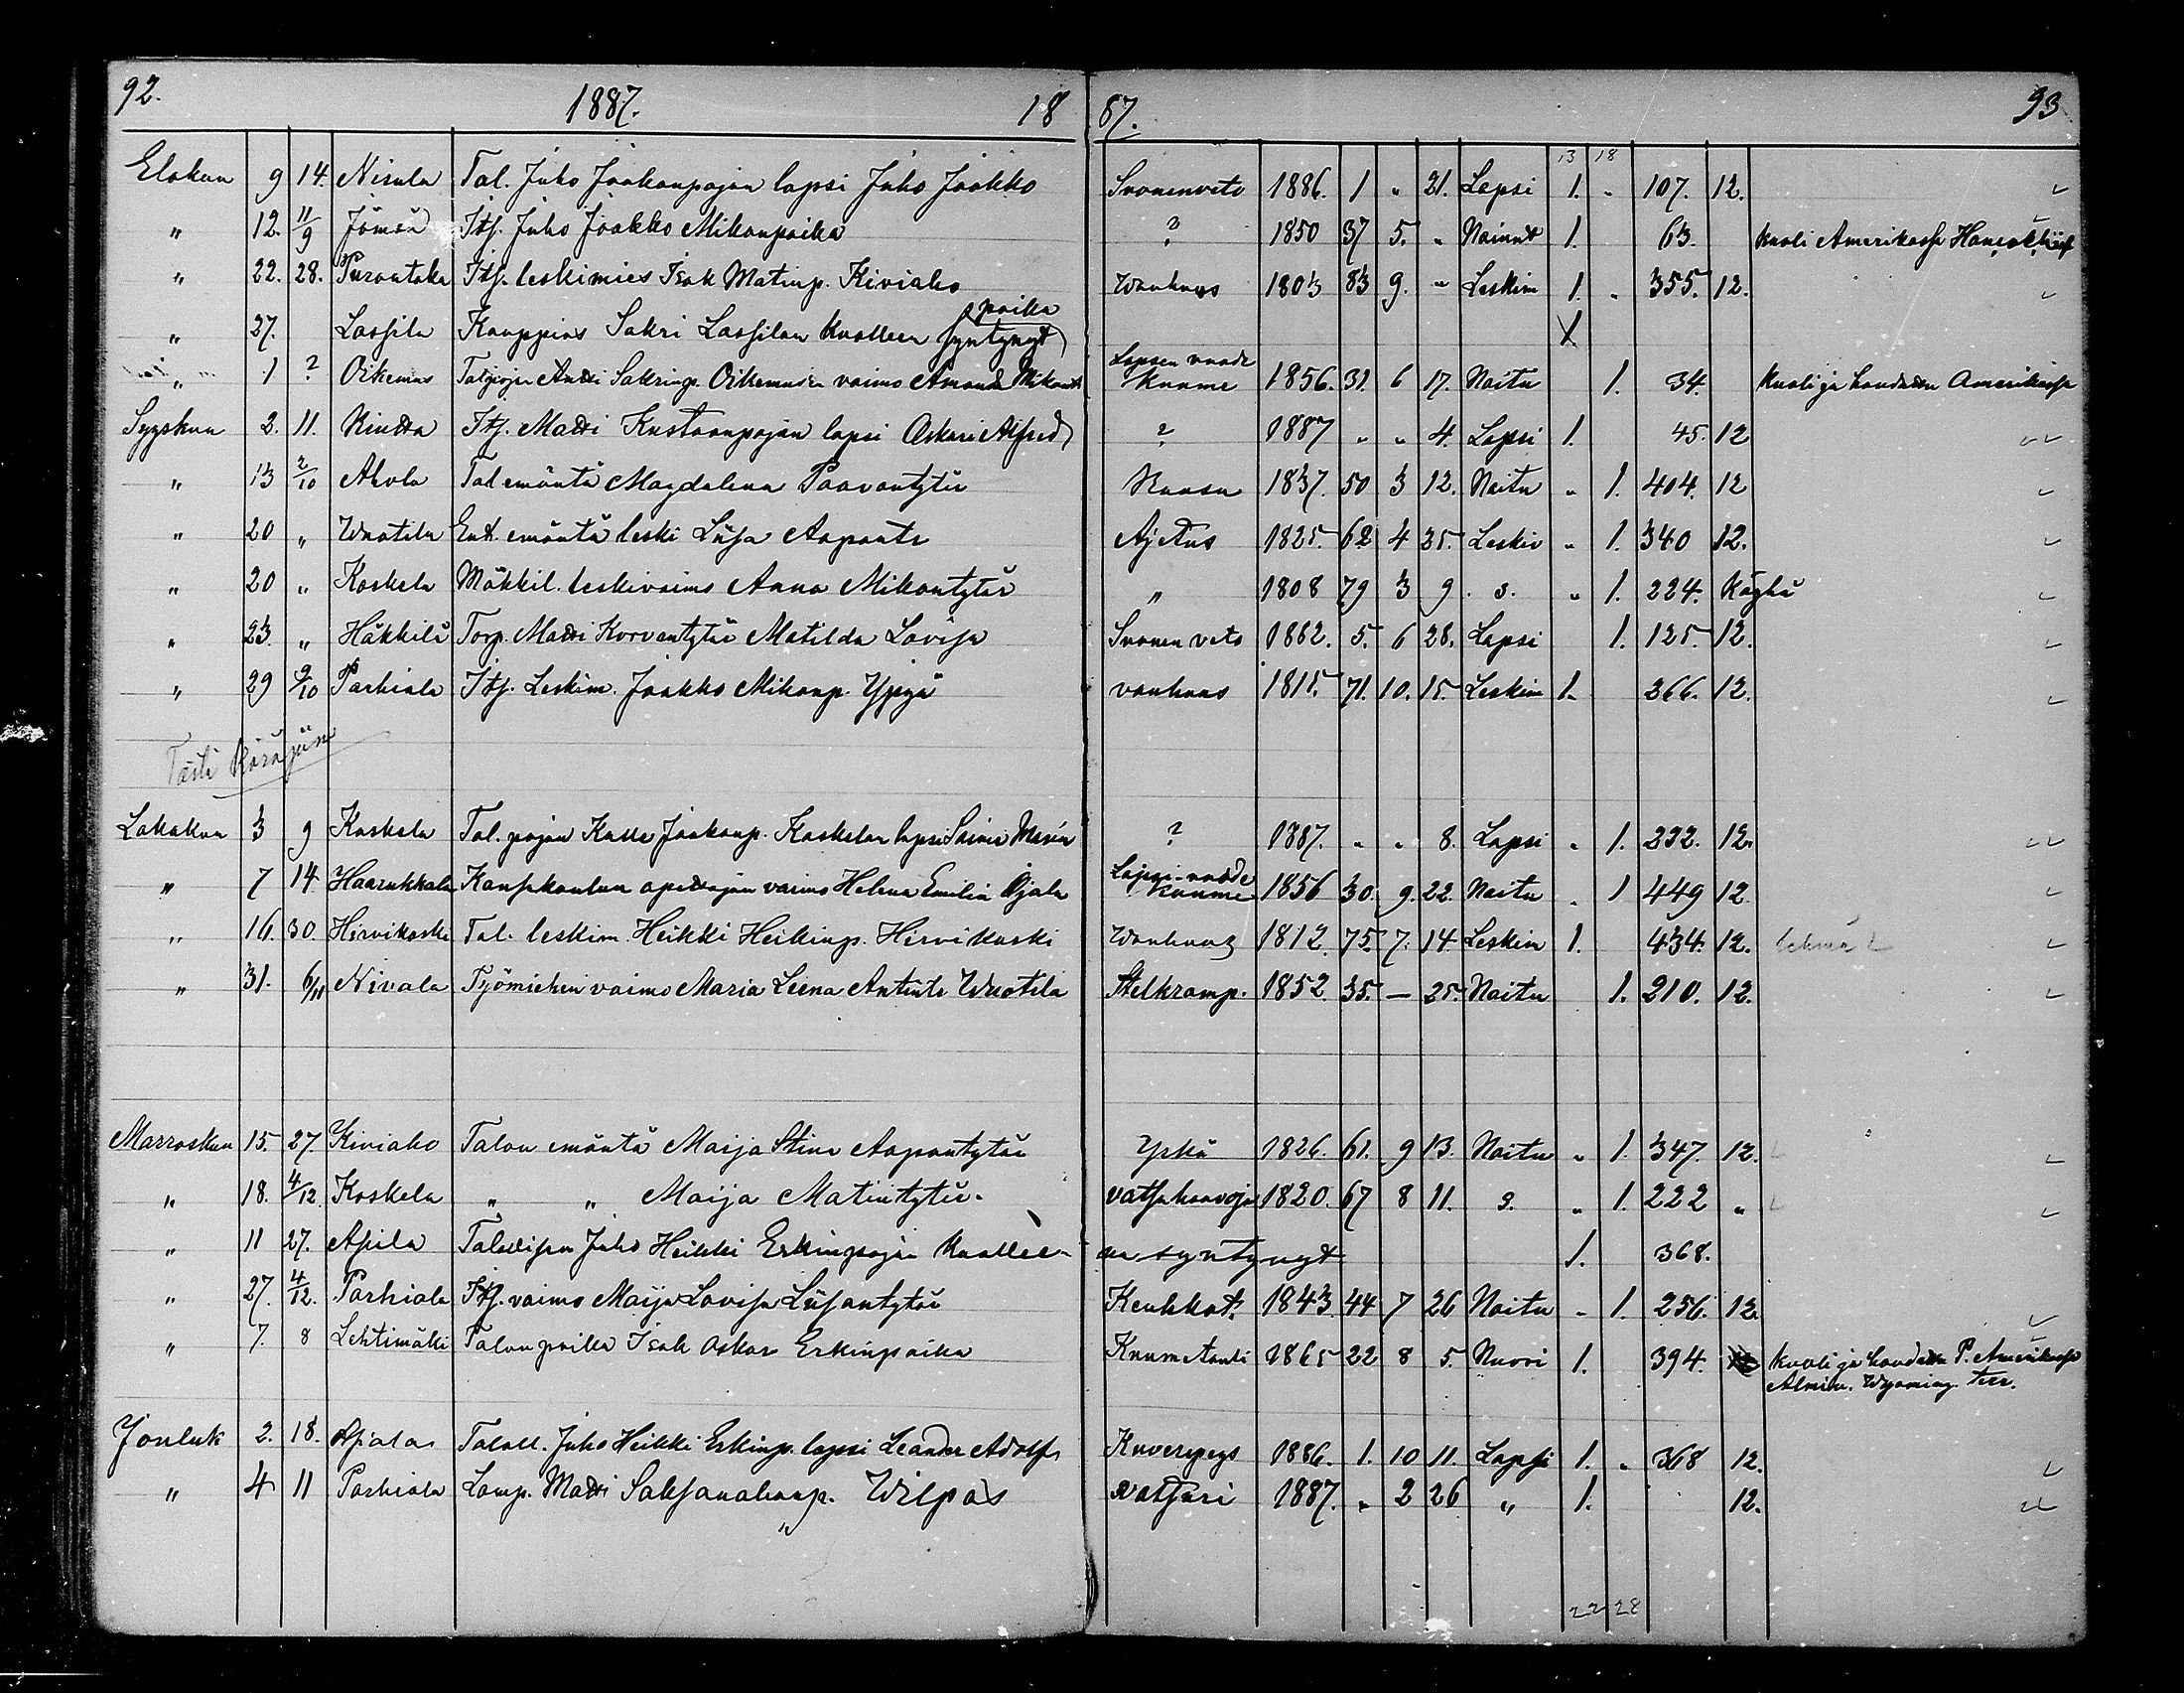 92. 1887. 18 87. 93
13 18
Elokun 9 14. Nisula Tal. Juho Jaakonpojan lapsi Juho Jaakko Suonenveto 1886. 1 " 21. Lapsi 1. " 107. 12.
" 12. 11/9 Itj. Juho Jaakko Mikonpoika ? 1850 37 5. " Nainut 1. 63. kuoli Amerikassa
" 22. 28. Purontaka Itj. leskimies Isak Matinp. Kiviaho Wanhuus 1803 83 9. " Leskim 1. " 355. 12.
poika
" 27. Lassila Kauppias Sakri Lassilan kuolleen syntynyt
" 1 ? Oikemus Talpojan Antti Sakrinp. Oikemusen vaimo Amanda Lapsen vuode kuume 1856. 31. 6 17. Naitu 1. 34. kuoli ja haudattu Amerikassa
Syyskuu 2. 11. Itj. Matti Kustaanpojan lapsi Oskari Alfred ? 1887 " " 4. Lapsi 1. 45. 12
" 13 2/10 Ahola Tal emäntä Magdalena Paavontytär 1837. 50 3 12. Naitu " 1. 404. 12
" 20 " Wuotila Ent. emäntä leski Liisa Aapontr Ajetus 1825. 62 4 25. Leskiv " 1. 340 12.
" 20 " Koskela Mäkkil. leskivaimo Anna Mikontytär " 1808 79 3 9. s. " 1. 224. Köyhä
" 23. " Häkkilä Torp. Matti Korvantytär Matilda Lovisa Suonen veto 1862. 5. 6 28. Lapsi 1. 125. 12.
" 29 9/10 Parhiala Itj. Leskim. Jaakko Mikonp. Yppyä vanhuus 1815. 71. 10. 15. Leskim 1. 266. 12.
Tästä Käräjiin
Lokakuu 3 9 Koskela Tal. pojan Kalle Jaakonp. Koskelan lapsi Saima Maria ? 1887. " " 8. Lapsi " 1. 232. 12.
" 7 14 Haarukkala Kansakoulun opettajan vaimo Helena Emilia Ojala Lapsi-vuode kuume 1856 30. 9. 22. Naitu " 1 449 12.
" 16. 30. Hirvikoski Tal. leskim. Heikki Heikinp. Hirvikoski Wanhuus 1812. 75. 7. 14 Leskim 1. 434. 12.
" 31. 6/11 Nivala Työmiehen vaimo Maria Leena Antintr Wuotila Stelkramp. 1852. 35. — 25. Naitu 1. 210. 12.
Marraskuu 15. 27. Kiviaho Talon emäntä Maija Stina Aapontytär Yskä 1826. 61. 9 13. Naitu " 1. 347. 12.
" 18. 4/12 Koskela " " Maija Matintytär. vatsahaavoja 1820. 67 8 11. s. " 1. 222 "
" 11 27. Apila Talollisen Juho Heikki Erkinpojan kuollee- na syntynyt 1. 368.
" 27. 4/12. Parhiala Itj. vaimo Maija Lovisa Liisantytär Keuhkot. 1843. 44 7 26 Naitu " 1. 256. 12.
" 7. 8 Lehtimäki Talon poika Isak Oskar Erkinpoika Kuumetauti 1865 22 8 5. Nuori 1. 394. kuoli ja haudattu P. Amerikassa
Wyoming terr.
Jouluk 2. 18. Taloll. Juho Heikki Erkinp. lapsi Leander Adolf 1886. 1. 10 11. Lapsi 1. " 368 12.
" 4 11 Parhiala Lamp. Matti Wilpas 1887. " 2 26 " 1. 12.
22 28